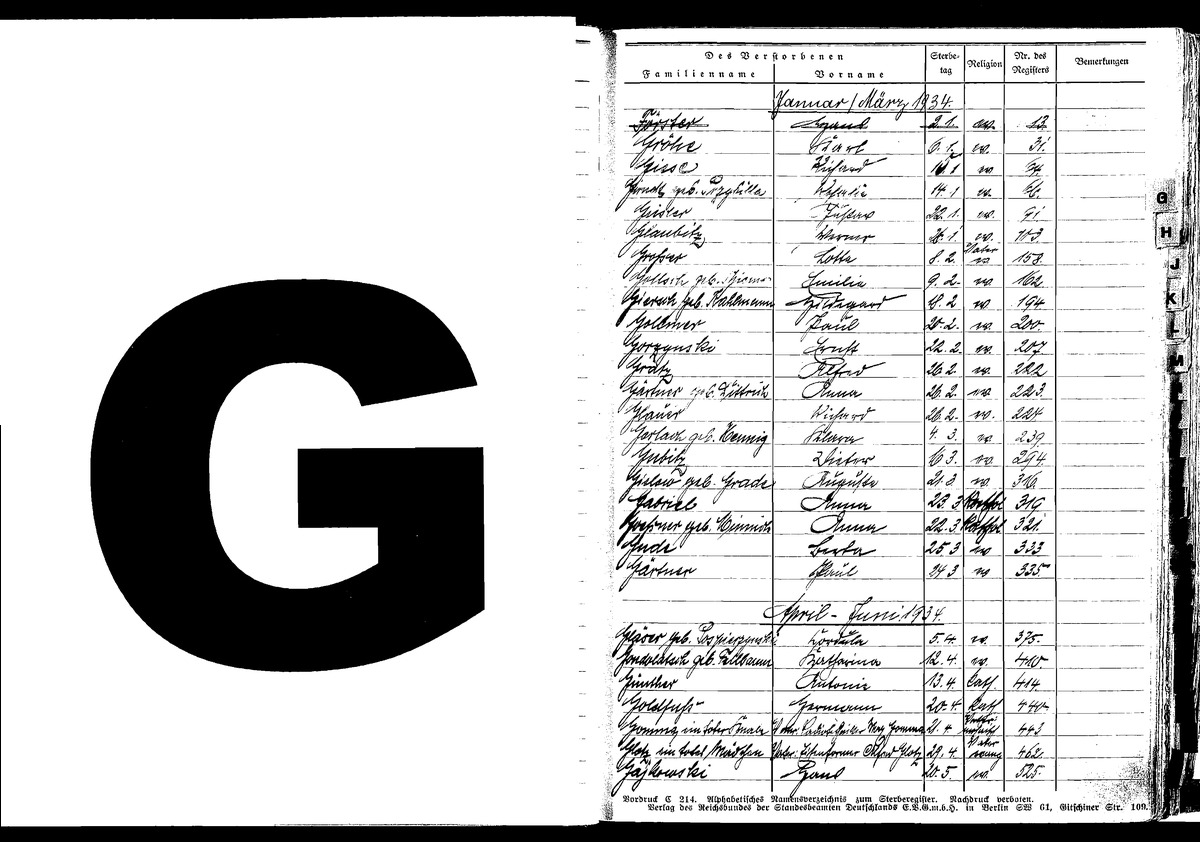 G
Des Verstorbenen
Familienname Vorname Sterbe-tag Religion Nr. des Registers Bemerkungen
Januar/März 1934.
Förster 2.1. ev. 13.
Gröhe Karl 6.1. ev. 31.
Giese Richard 1 ev. 64
geb. 14.1 ev. 66.
Geisler Gustav 22.1. ev. 91.
Glaubitz Werner 1. ev. 103.
Großer Lotte 8.2. Vater ev. 158.
geb. Emilie 9.2. ev. 162.
Giersch geb. Kahlmann Hildegard 18.2 ev. 194
Gollmer Paul 20.2. ev. 200.
Gorzynski Ernst 22.2. ev. 207.
Grätz Alfred 26.2. ev. 222
Gärtner geb. Dittrich Anna 26.2. ev. 223.
Glauer Richard 26.2. ev. 224
Gerlach geb. Hennig Klara 4.3. ev. 239
Gubitz Dieter 16 3. ev. 294.
geb. Grade Auguste 21.3 ev. 316.
Gabriel Anna 23.3 Kathol 319
geb. Anna 22.3 Kathol 321.
Gude Berta 25.3 ev 333
Gärtner Paul 24 3 ev 335
April - Juni 1934.
Gläser geb. Cordula 5.4. ev. 375.
geb. Feldbaum Katharina 12.4. ev. 410
Günther Antonie 13.4. kath. 414.
Goldfuß Hermann 20.4. kath 440
ein toter Knabe Vater: 21.4 443
Glotz ein totes Mädchen Vater: Alfred Glotz 29.4. Vater 462.
Gajkowski Hans 20.5. ev. 525.
Vordruck C 214. Alphabetisches Namensverzeichnis zum Sterberegister. Nachdruck verboten.
Verlag des Reichsbundes der Standesbeamten Deutschlands E.V.G.m.b.H. in Berlin SW 61, Gitschiner Str. 109.
G
H
J
K
L
M